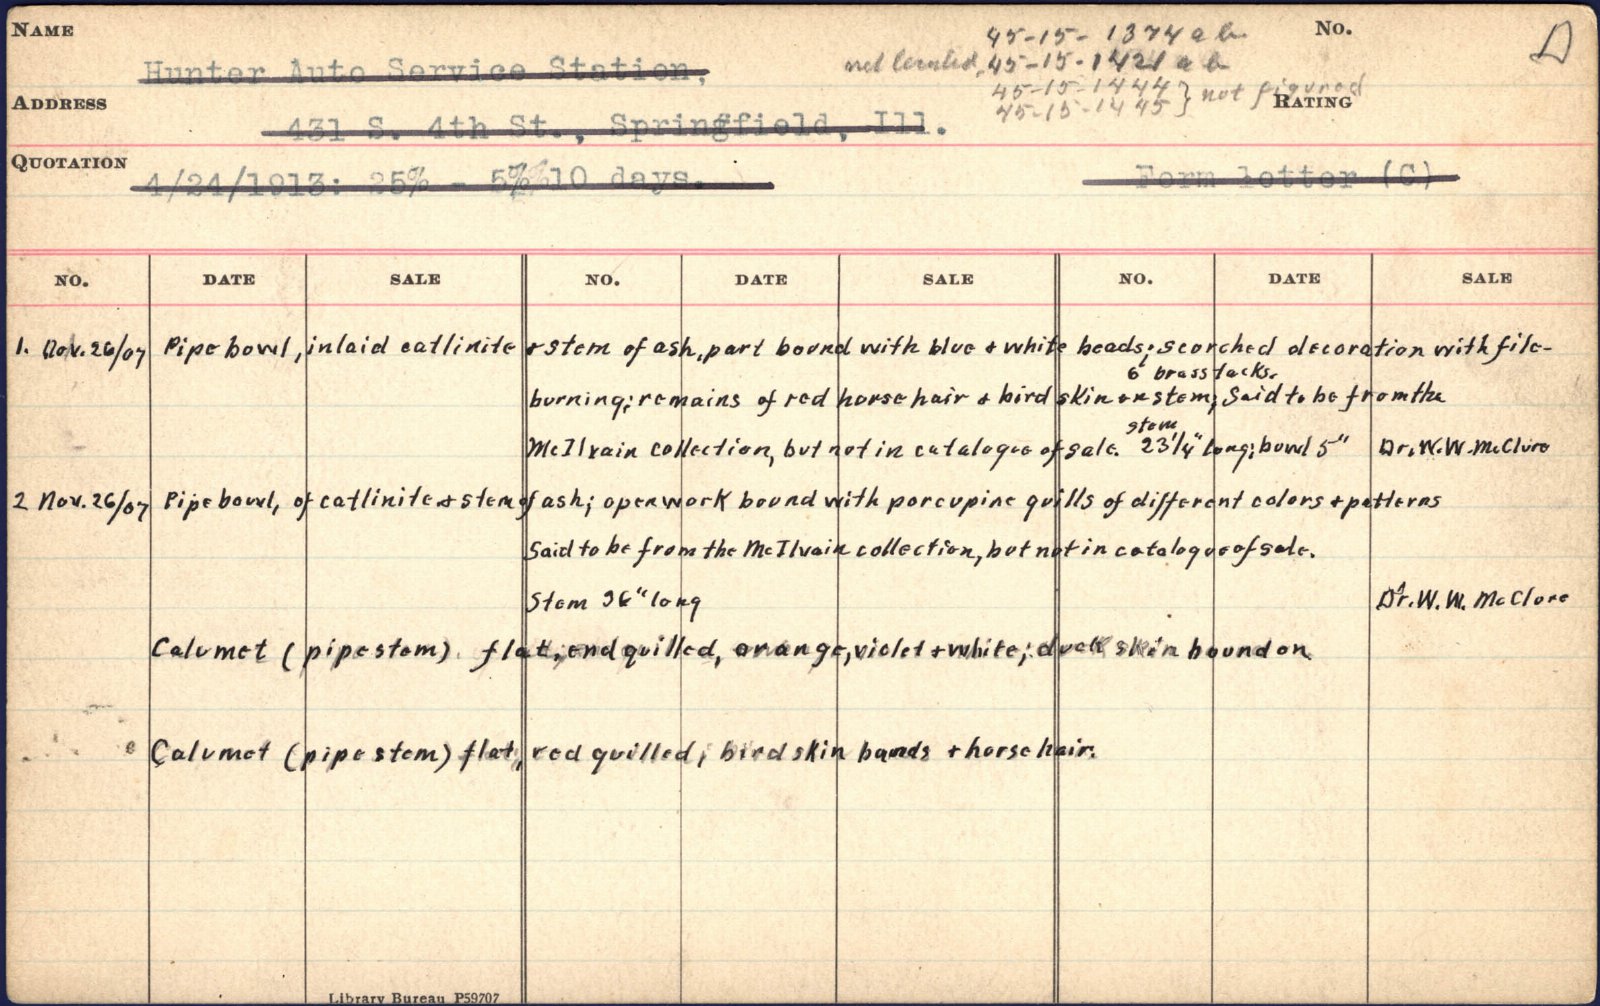 NAME
45-15-1374 a b
No.
D
Hunter Auto Service Station,
not located 45-15-1421 a b
45-15-1444 } not figured
ADDRESS
RATING
45-15-1445
431 S. 4th St., Springfield, Ill.
QUOTATION
4/24/1913: 25% - 5% 10 days.
Form letter (C)
NO. DATE SALE NO. DATE SALE NO. DATE SALE
1. Nov. 26/07 Pipe bowl, inlaid catlinite + stem of ash, part bound with blue + white beads; scorched decoration with file-
6 brass tacks.
burning; remains of red horse hair + bird skin on stem; Said to be from the
stem
McIlvain collection, but not in catalogue of sale. 23 1/4" long; bowl 5" Dr. W. W. McClure
2 Nov. 26/07 Pipe bowl, of catlinite + stem of ash; openwork bound with porcupine quills of different colors + patterns
Said to be from the McIlvain collection, but not in catalogue of sale.
Stem 36" long Dr. W. W. McClure
Calumet (pipe stem) flat, end quilled, orange, violet + white; duck skin bound on
Calumet (pipe stem) flat, red quilled; bird skin bands + horse hair.
Library Bureau P59707